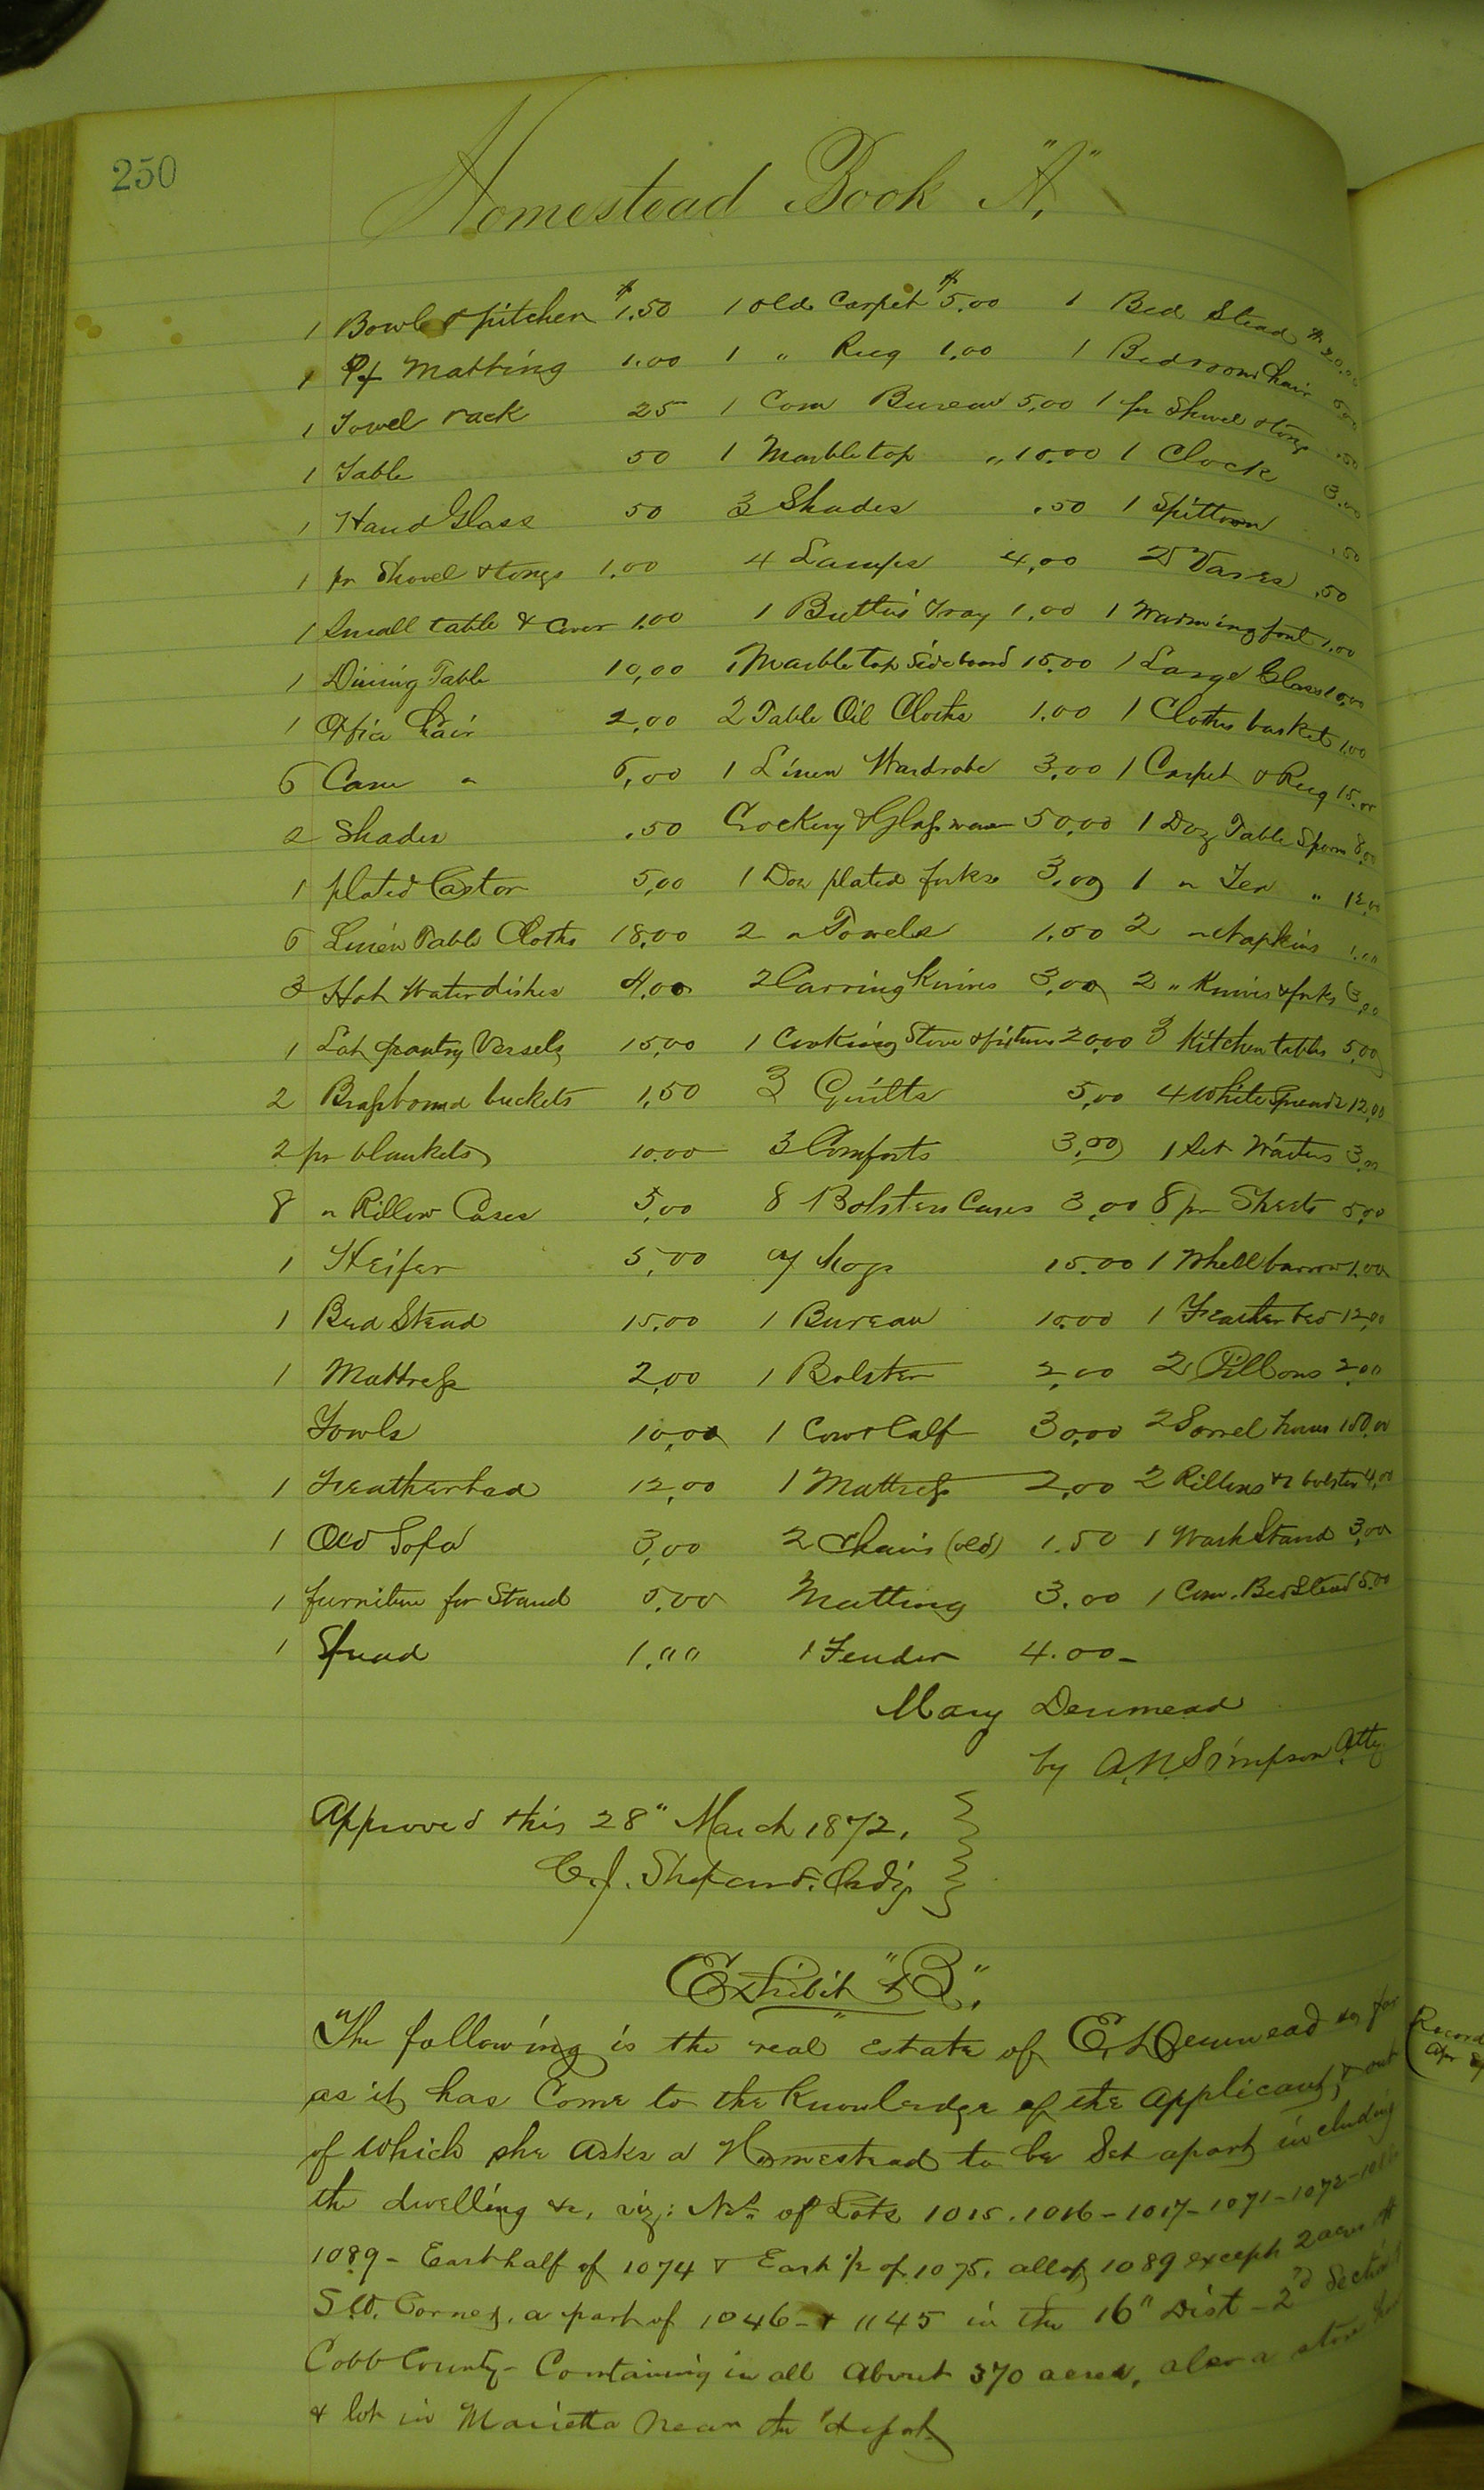 250
Homestead Book "A."
1 Bowl & pitcher $1.50 1 old Carpet $5.00 1 Bed Stead $20.00
1 Pf Matting 1.00 1 " Rug 1.00 1 Bedroom Chair
1 Towel rack 25 1 Com Bureau 5,00 1 pr Shovel & tongs .50
1 Table 50 1 Marble top " 10.00 1 Clock 3.00
1 Hand Glass 50 3 Shades .50 1 Spittoon .50
1 pr Shovel & tongs 1.00 4 Lamps 4,00 2 Vases .50
1 Small table & Cover 1.00 1 Butter Tray 1.00 1 Warming 1.00
1 Dining Table 10,00 1 Marble top Sideboard 15.00 1 Large Glass 10,00
1 Office Chair 2,00 2 Table Oil Cloths 1.00 1 Clothes basket 1.00
6 Cane " 6,00 1 Linen Wardrobe 3,00 1 Carpet & Rug 15.00
2 Shades .50 Crockery & Glassware 50,00 1 Doz Table Spoons 8,00
1 plated Castor 5,00 1 Doz plated forks 3,00 1 " Tea "
6 Linen Table Cloths 18,00 2 " Towels 1.50 2 " Napkins 1.00
3 Hot Water dishes 4,00 2 Carving Knives 3,00 2 " Knives & forks 3,00
1 Lot pantry Vessels 15,00 1 Cooking Stove & fixtures 20,00 3 Kitchen tables 5,00
2 Brassbound buckets 1,50 3 Quilts 5,00 4 White Spreads 12,00
2 pr blankets 10.00 3 Comforts 3,00 1 Set Waiters 3,00
8 " Pillow Cases 5,00 8 Bolsters Cases 3,00 8 pr Sheets 5,00
1 Heifer 5,00 7 hogs 15.00 1 Whellbarrow 1.00
1 Bed Stead 15,00 1 Bureau 10.00 1 Feather bed 12,00
1 Mattress 2,00 1 Bolster 2,00 2 Pillows 2,00
Fowls 10,00 1 Cow & Calf 30,00 2 Sorrel horses 150,00
1 Featherbed 12,00 1 Mattress 2,00 2 Pillows & 1 bolster 4,00
1 Old Sofa 3,00 2 Chairs (old) 1.50 1 Wash Stand 3,00
1 furniture for Stand 5.00 Matting 3.00 1 Com. Bed Stead 5.00
1 Spread 1.00 1 Fender 4.00
Mary Denmead
by A.N. Simpson Atty
Approved this 28" March 1872.
C.J. Shepard. Ordy
Exhibit "B".
The following is the real Estate of E. Denmead so far
as it has Come to the Knowledge of the Applicant, & out
of which she asks a Homestead to be Set apart including
the dwelling &c, viz: Nos. of Lots 1015. 1016 - 1017 - 1071 - 1072 -
1089 - East half of 1074 & East 1/2 of 1075. all of 1089 except 2 acres
S.W. Corner, a part of 1046 - & 1145 in the 16" Dist - 2d Section
Cobb County - Containing in all about 370 acres, also a store house
& lot in Marietta near the depot
Record
Apr